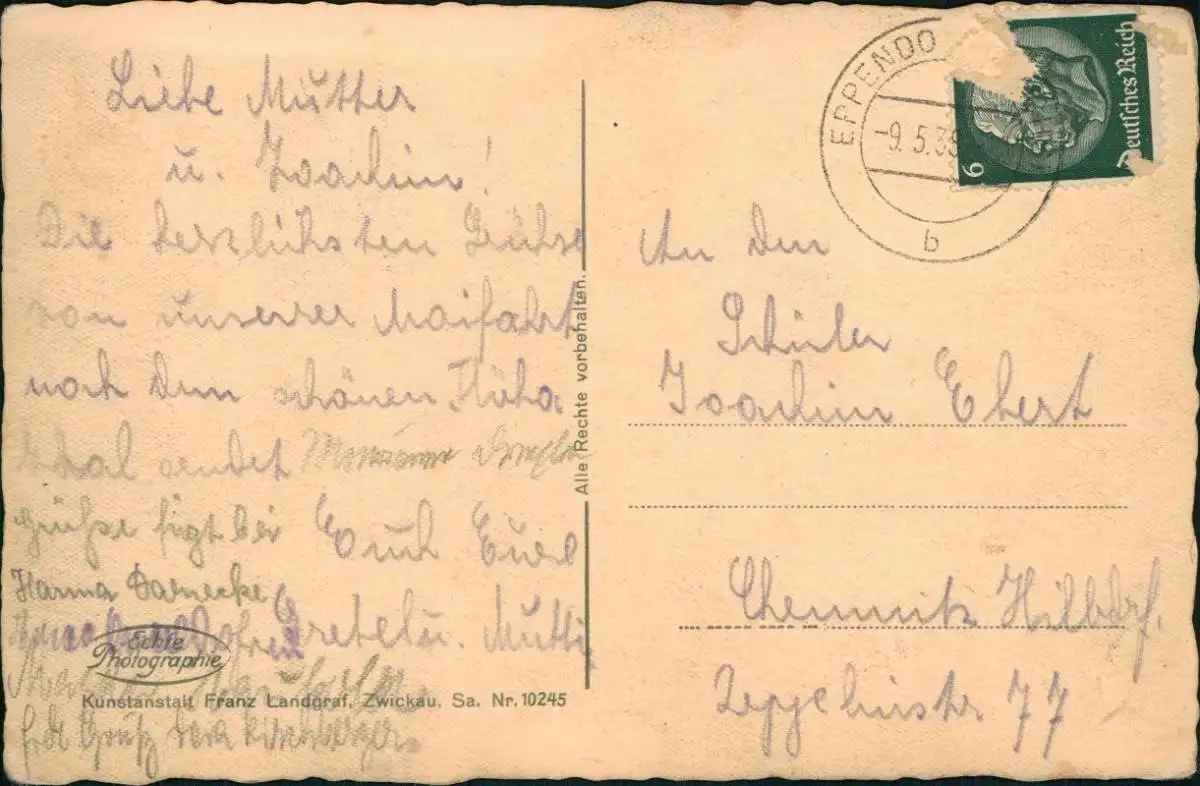 Liebe Mutter
u. Joachim!
Die herzlichsten Grüße
von unserer Maifahrt
nach dem schönen Flöha
tal sendet
Grüße fügt bei Euch Eure
Hanna
Gretel u. Mutti
Echte
Photographie
Kunstanstalt Franz Landgraf, Zwickau, Sa. Nr. 10245
Alle Rechte vorbehalten.
EPPENDO
-9.5.3
b
6
Deutsches Reich
An den
Schüler
Joachim Ebert
Chemnitz Hilbdrf.
Zeppelinstr 77